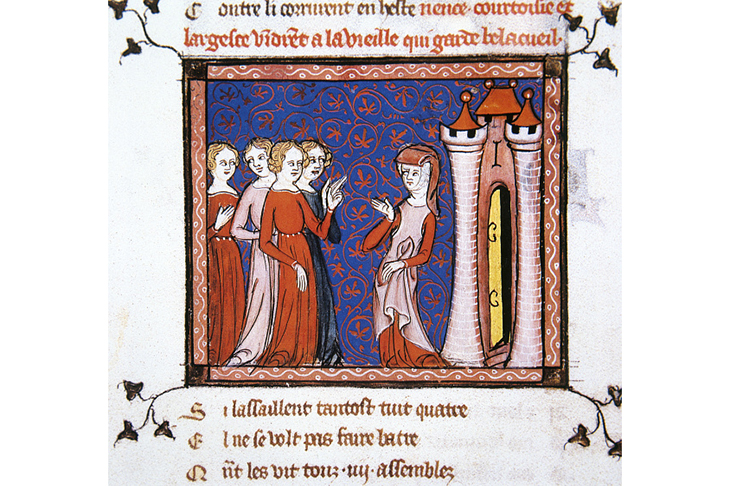 C outre li corrurent en heste nence·courtoisie et
largesce vīdrēt a la vieille qui garde belacueil·
S i lassaillent tantost tuit quatre
E l ne se volt pas faire batre
Q ūt les vit touz·iiij·assemblez